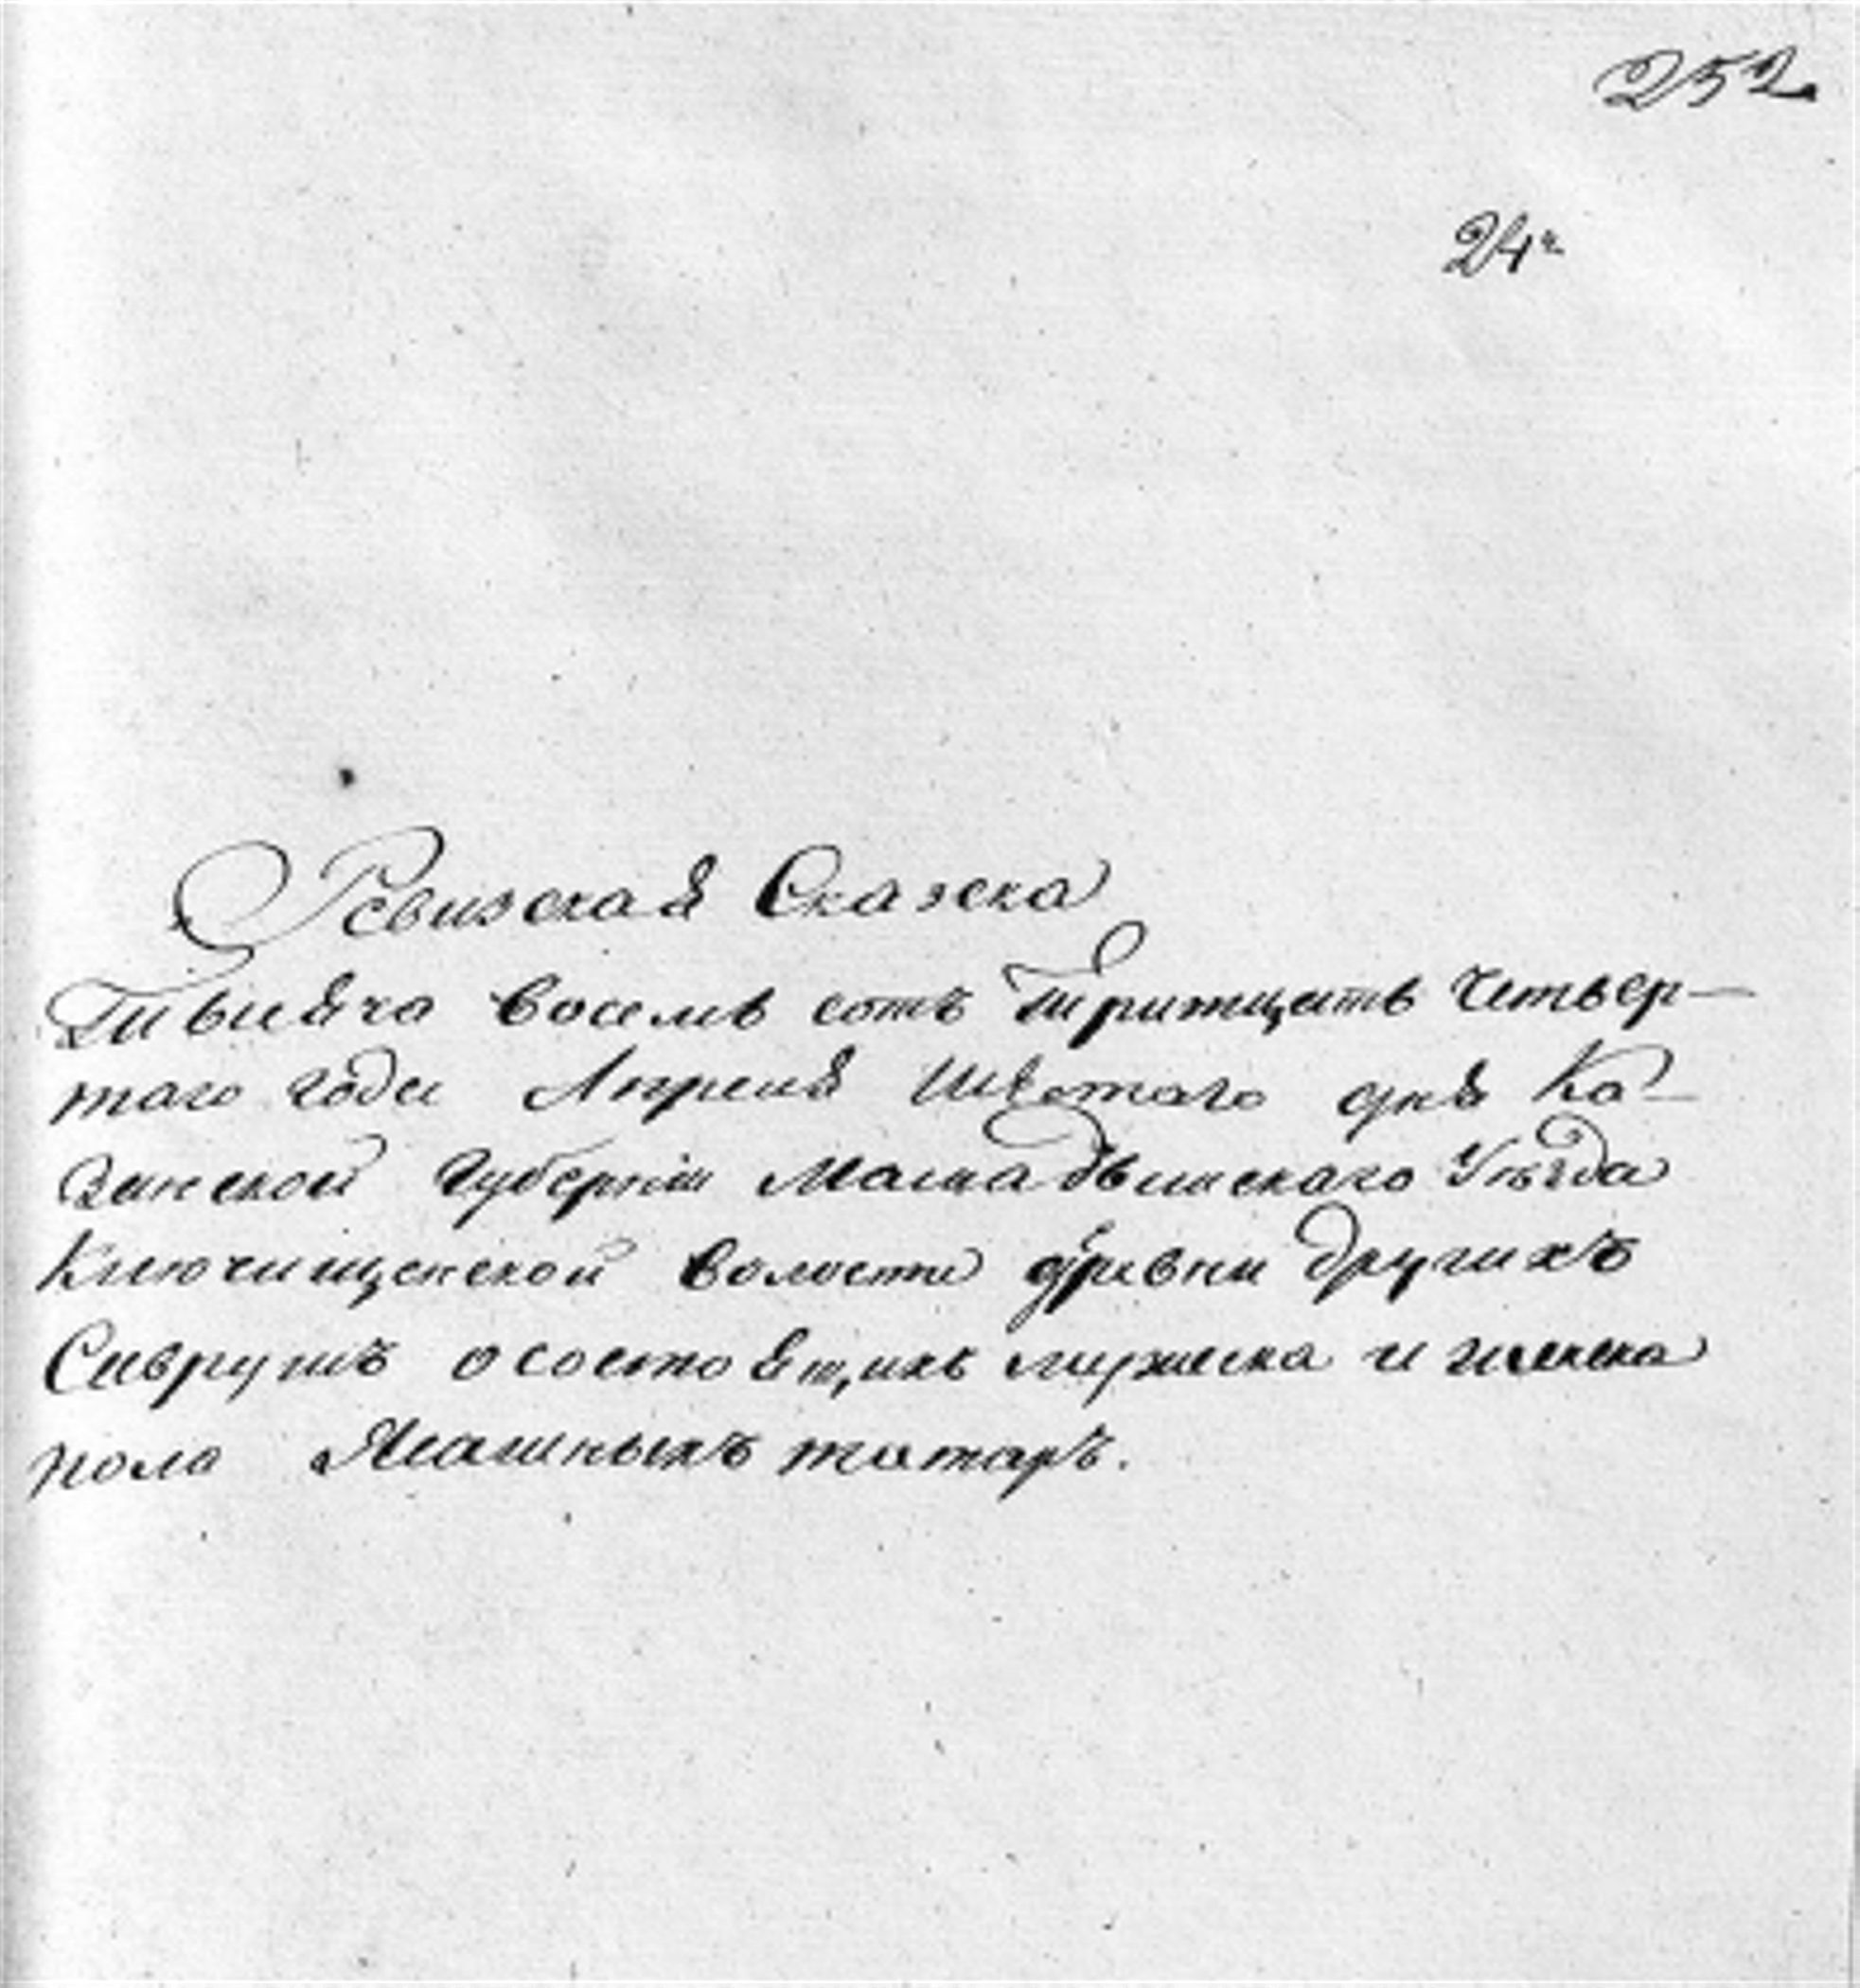 252
24
Ревизская Сказка
Тысяча восемь сотъ Тритцать Четвер-
таго года Апреля Шѣстаго дня Ка-
занской Губерніи Мамадышскаго Уѣзда
Ключищенской волости деревни Другихъ
Саврушъ о состоящихъ мужеска и женска
пола Ясашныхъ татаръ.